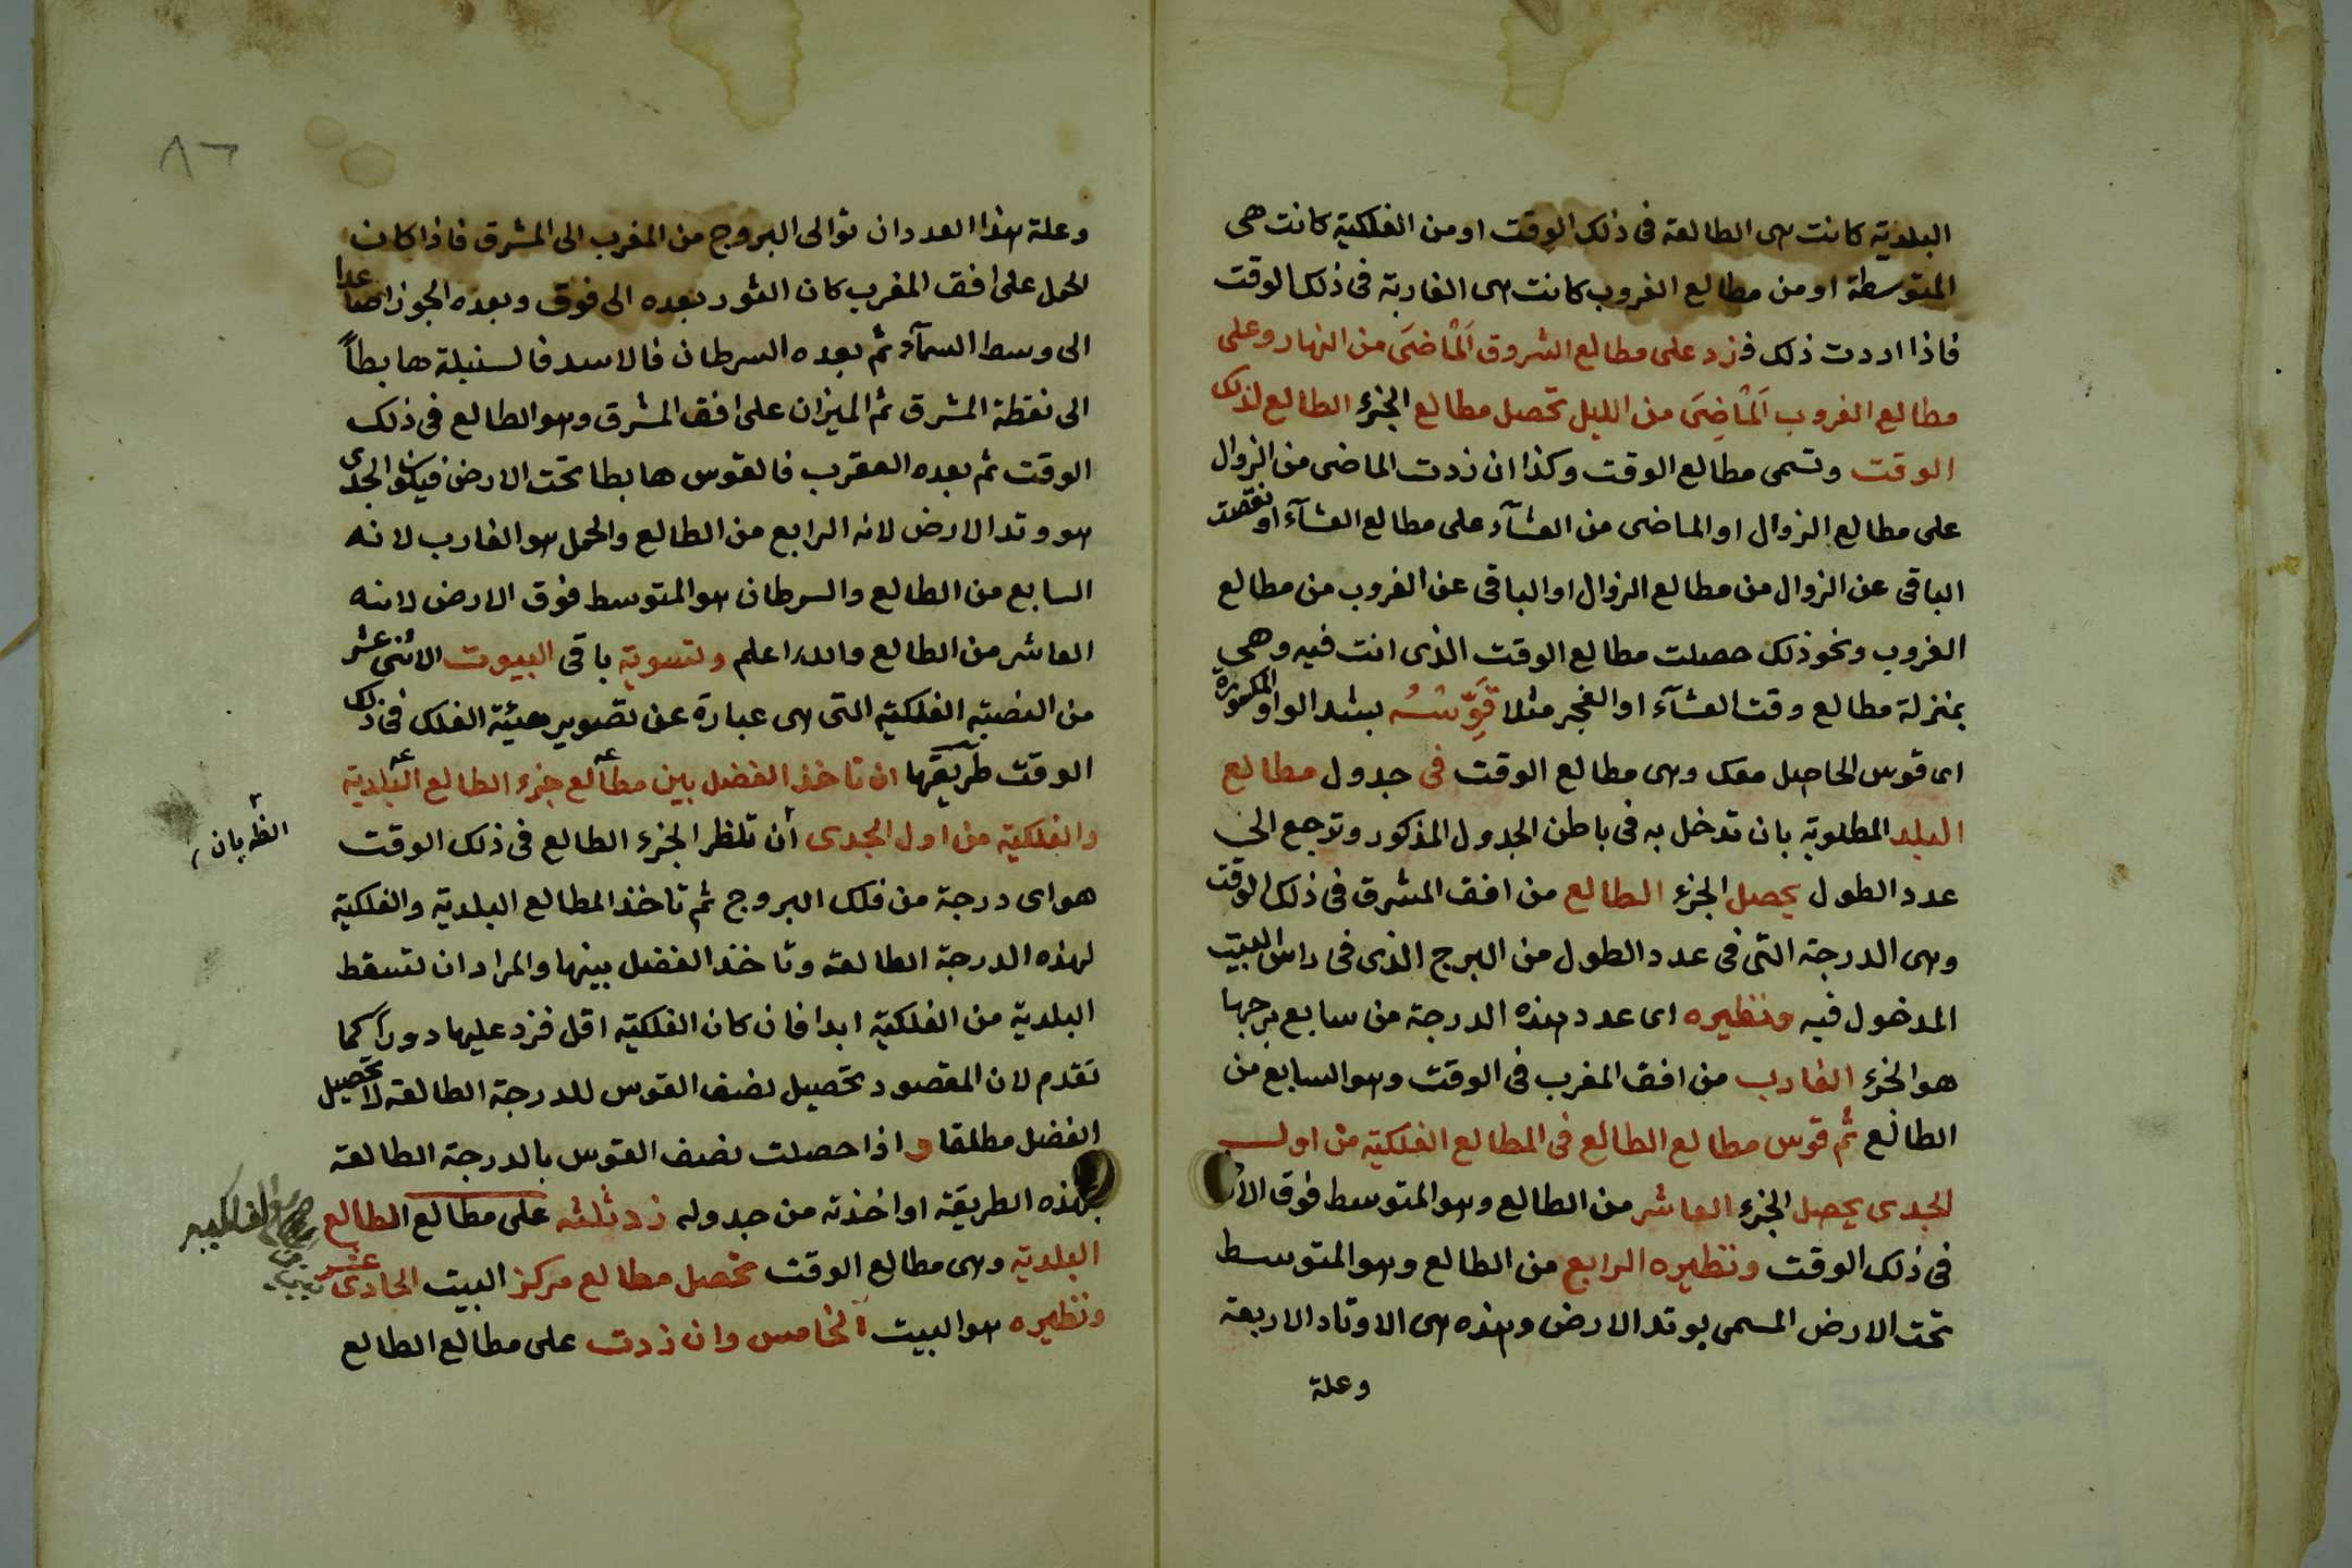 البلدية كانت هى الطالعة فى ذلك الوقت او من الفلكية كانت هى
المتوسطة او من مطالع الغروب كانت هى الغاربة فى ذلك الوقت
فاذا اردت ذلك فزد على مطالع الشروق اَلْمَاضَى من النهار وعلى
مطالع الغروب اَلْمَاضِىَ من الليل تحصل مطالع الجزء الطالع لذلك
الوقت وتسمى مطالع الوقت وكذا ان زدت الماضى من الزوال
على مطالع الزوال او الماضى من العشآء على مطالع العشآء او نقصت
الباقى عن الزوال من مطالع الزوال او الباقى عن الغروب من مطالع
الغروب ونحو ذلك حصلت مطالع الوقت الذى انت فيه وهى
بمنزلة مطالع وقت العشآء او الفجر مثلا قَوِّسْهُ بشد الواو المكسورة
اى قوس الحاصل معك وهى مطالع الوقت فى جدول مطالع
البلد المطلوبة بان تدخل به فى باطن الجدول المذكور وترجع الى
عدد الطول يحصل الجزء الطالع من افق المشرق فى ذلك الوقت
وهى الدرجة التى فى عدد الطول من البرج الذى فى راس البيت
المدخول فيه ونظيره اى عدد هذه الدرجة من سابع برجها
هو الجزء الغارب من افق المغرب فى الوقت وهو السابع من
الطالع ثم قوس مطالع الطالع فى المطالع الفلكية من اول
الجدى يحصل الجزء العاشر من الطالع وهو المتوسط فوق الارض
فى ذلك الوقت ونظيره الرابع من الطالع وهو المتوسط
تحت الارض المسمى بوتد الارض وهذه هى الاوتاد الاربعة
وعلة
٨٦
وعلة هذا العدد ان توالى البروج من المغرب الى المشرق فاذا كان
الحمل على افق المغرب كان الثور بعده الى فوق وبعده الجوزا صاعدا
الى وسط السمآء ثم بعده السرطان فالاسد فالسنبلة هابطاً
الى نقطة المشرق ثم الميزان على افق المشرق وهو الطالع فى ذلك
الوقت ثم بعده العقرب فالقوس هابطا تحت الارض فيكون الجدى
هو وتد الارض لانه الرابع من الطالع والحمل هو الغارب لانه
السابع من الطالع والسرطان هو المتوسط فوق الارض لانه
العاشر من الطالع والله اعلم ولتسوية باقى البيوت الاثنى عشر
من النصبة الفلكية التى هى عبارة عن تصوير هيئة الفلك فى ذلك
الوقت طريقها ان تاخذ الفضل بين مطالع جزء الطالع البلدية
والفلكية من اول الجدى أن تنظر الجزء الطالع فى ذلك الوقت
الظ بان
هو اى درجة من فلك البروج ثم تاخذ المطالع البلدية والفلكية
لهذه الدرجة الطالعة وتاخذ الفضل بينها والمراد ان تسقط
البلدية من الفلكية ابدا فان كان الفلكية اقل فزد عليها دوراً كما
تقدم لان المقصود تحصيل نصف القوس للدرجة الطالعة لا تحصيل
الفضل مطلقا واذا حصلت نصف القوس بالدرجة الطالعة
بهذه الطريقة او اخذته من جدوله زد ثلثه على مطالع الطالع
البلدية وهى مطالع الوقت تحصل مطالع مركز البيت الحادى عشر
ونظيره هو البيت الخامس وان زدت على مطالع الطالع